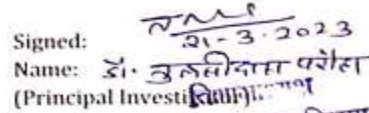 Signed:
21-3-2023
Name: डॉ. तुलसीदास परौहा
(Principal Investi